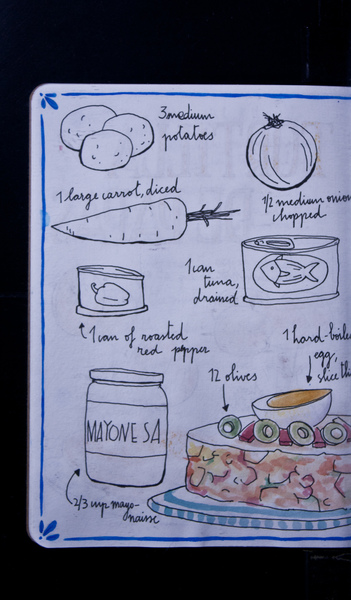 3 medium
potatoes
1 large carrot, diced
1/2 medium onion
chopped
1 can
tuna,
drained
1 can of roasted
red pepper
1 hard-boile
egg,
slice thi
12 olives
MAYONESA
2/3 cup mayo-
naise